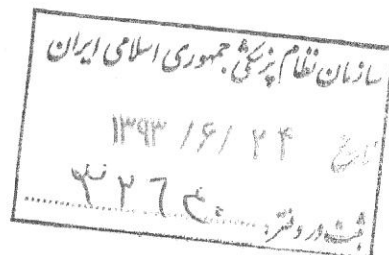 سازمان نظام پزشکی جمهوری اسلامی ایران
تاریخ ۱۳۹۳ / ۶ / ۲۴
ثبت در دفتر: